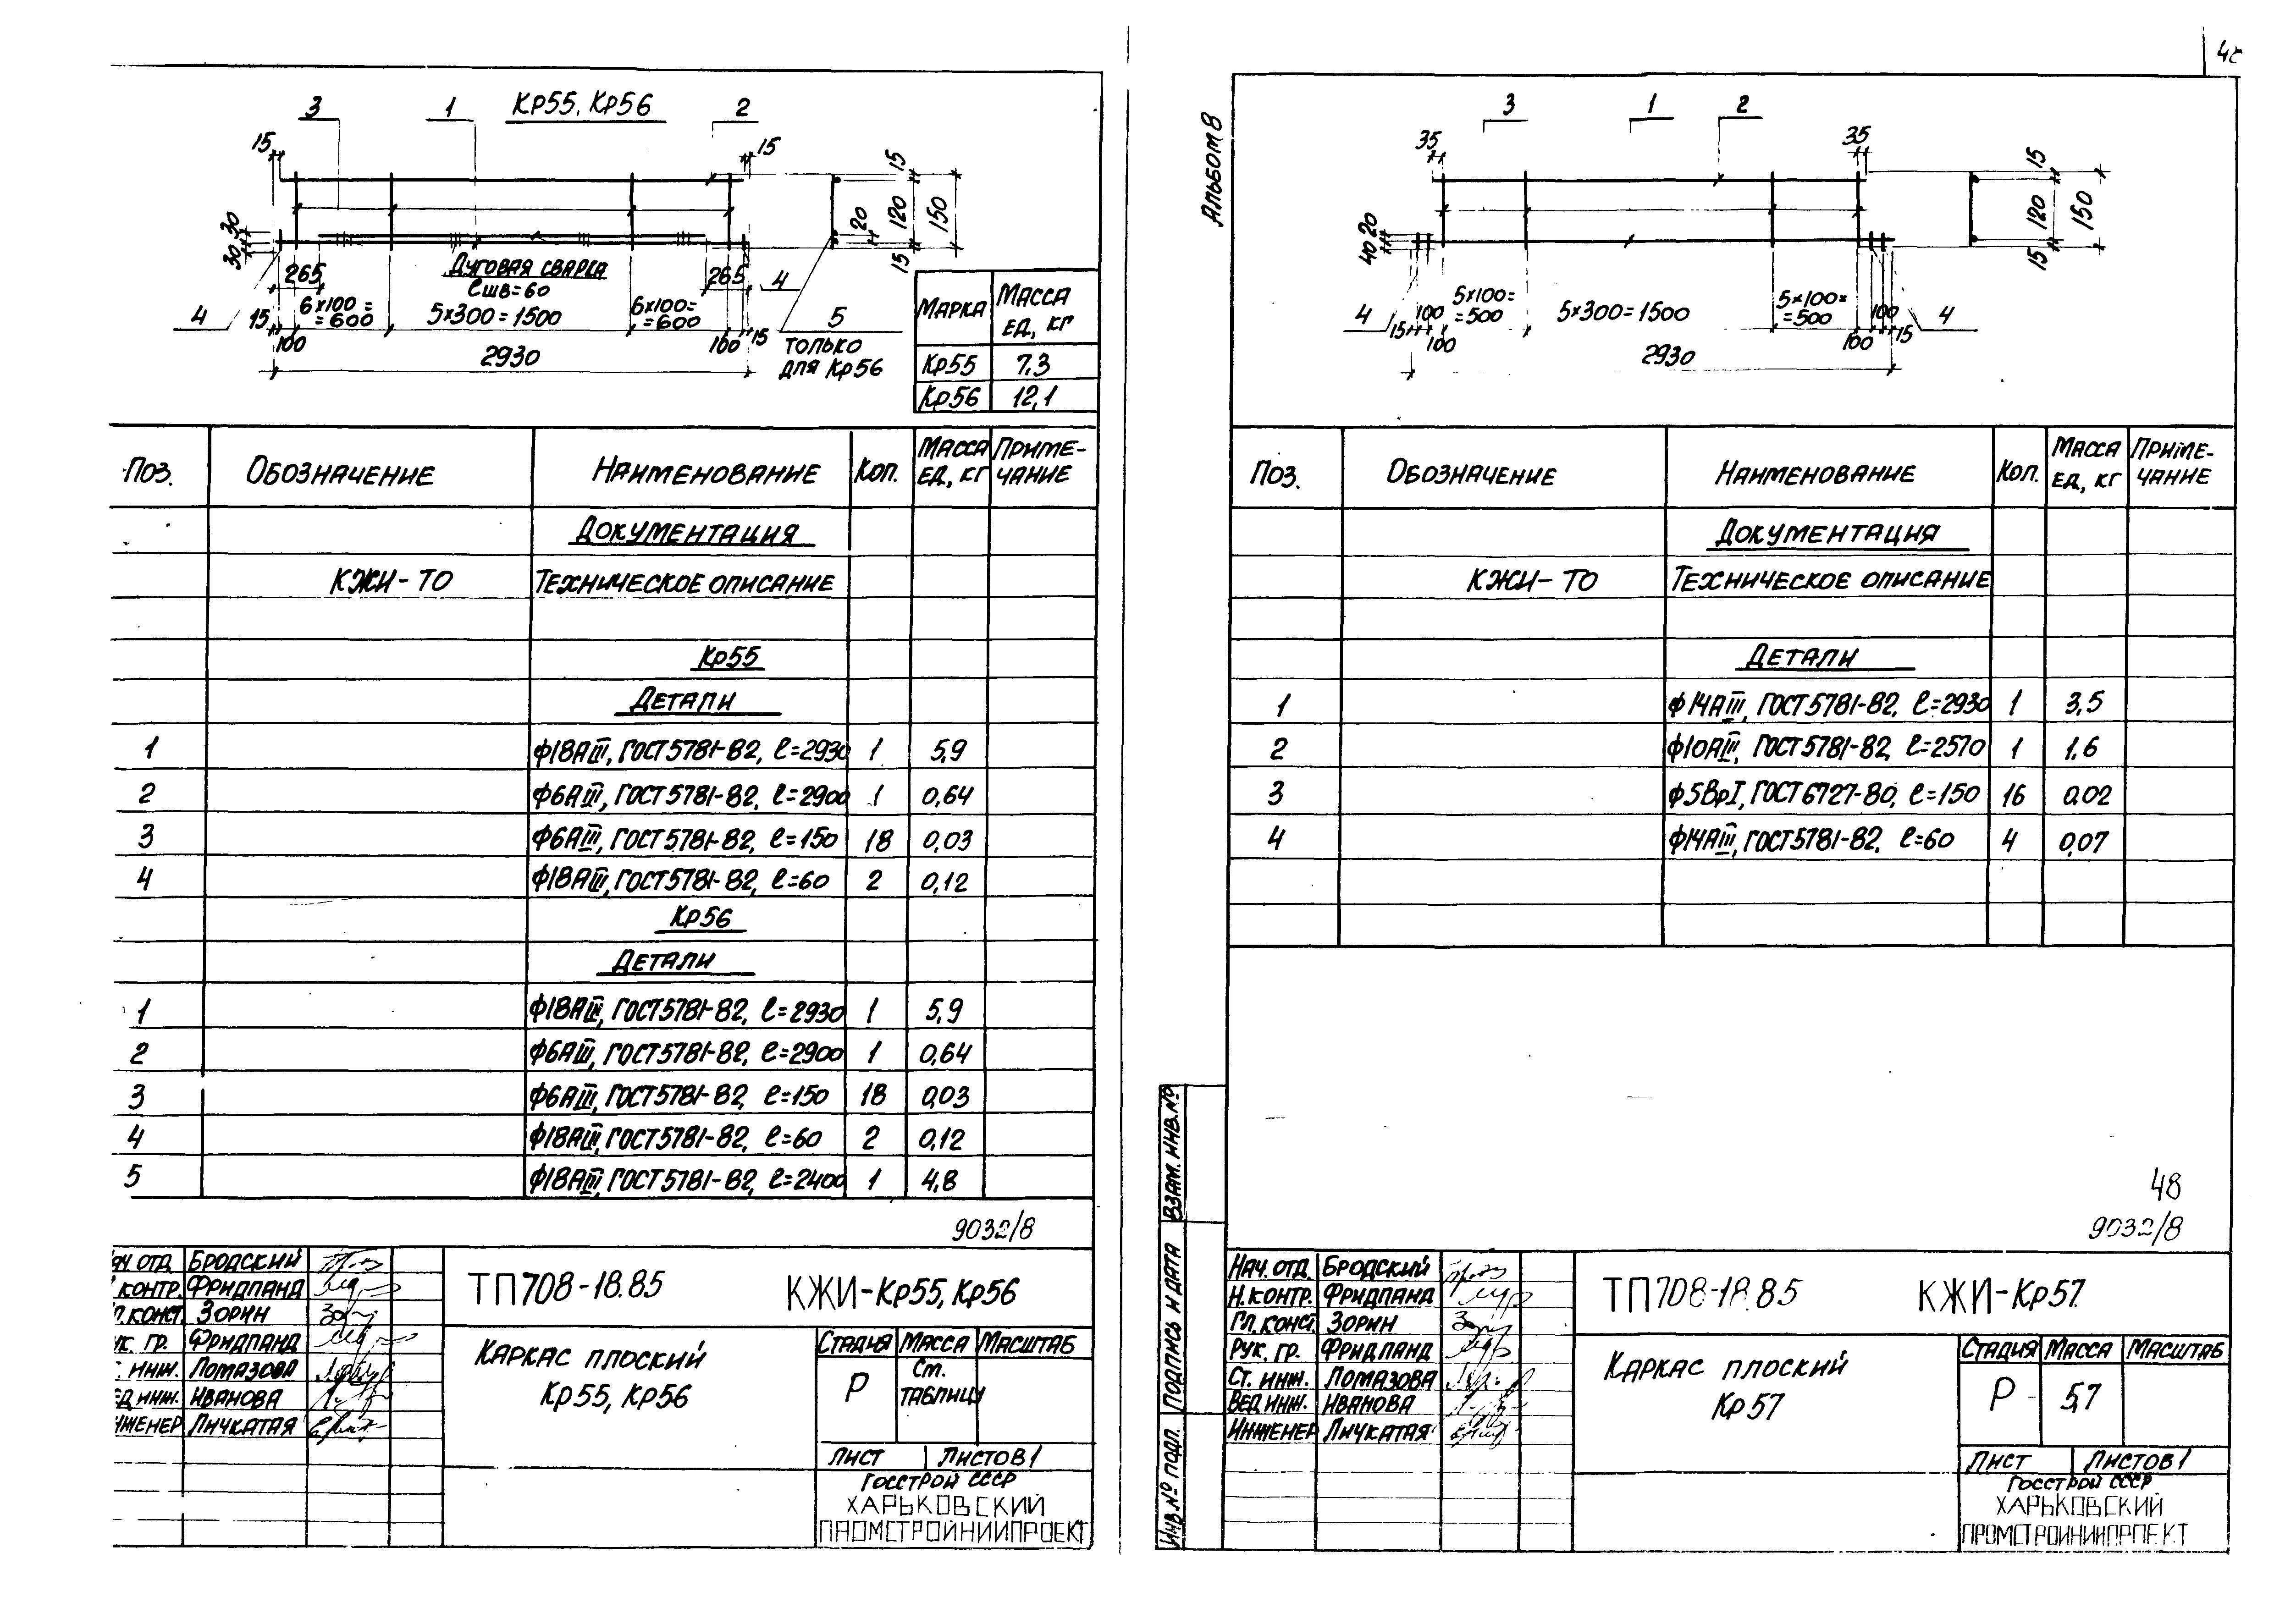 Кр55, Кр56
3
1
2
15
15
30
30
265
Дуговая сварка
ℓшв=60
265
4
4
15
100
6×100=
=600
5×300=1500
6×100=
=600
100
15
2930
20
15
120
15
150
5
только
для Кр56
Марка
Масса
ед, кг
Кр55
7.3
Кр56
12,1
Поз.
Обозначение
Наименование
Кол.
Масса
ед, кг
Приме-
чание
Документация
КЖИ-ТО
Техническое описание
Кр55
Детали
1
ф18АIII, ГОСТ 5781-82, ℓ=2930
1
5,9
2
ф6АIII, ГОСТ 5781-82, ℓ=2900
1
0,64
3
ф6АIII, ГОСТ 5781-82, ℓ=150
18
0,03
4
ф18АIII, ГОСТ 5781-82, ℓ=60
2
0,12
Кр56
Детали
1
ф18АIII, ГОСТ 5781-82, ℓ=2930
1
5,9
2
ф6АIII, ГОСТ 5781-82, ℓ=2900
1
0,64
3
ф6АIII, ГОСТ 5781-82, ℓ=150
18
0,03
4
ф18АIII, ГОСТ 5781-82, ℓ=60
2
0,12
5
ф18АIII, ГОСТ 5781-82, ℓ=2400
1
4,8
9032/8
Бродский
контр. Фридланд
конст. Зорин
гр. Фридланд
инж. Ломазова
инж. Иванова
Личкатая
ТП 708-18.85
КЖИ-Кр55, Кр56
Каркас плоский
Кр55, Кр56
Стадия
Масса
Масштаб
Р
См.
таблицу
Лист
Листов 1
Госстрой СССР
ХАРЬКОВСКИЙ
ПРОМСТРОЙНИИПРОЕКТ
Альбом 8
3
1
2
35
35
20
40
4
15
100
100
5×100=
=500
5×300=1500
5×100=
=500
100
100
15
4
2930
15
120
15
150
Поз.
Обозначение
Наименование
Кол.
Масса
ед, кг
Приме-
чание
Документация
КЖИ-ТО
Техническое описание
Детали
1
ф14АIII, ГОСТ 5781-82, ℓ=2930
1
3,5
2
ф10АIII, ГОСТ 5781-82, ℓ=2570
1
1.6
3
ф5ВрI, ГОСТ 6727-80, ℓ=150
16
0,02
4
ф14АIII, ГОСТ 5781-82, ℓ=60
4
0,07
48
9032/8
Взам. инв. №
Подпись и дата
Инв. № подл.
Нач. отд. Бродский
Н. контр. Фридланд
Гл. конст. Зорин
Рук. гр. Фридланд
Ст. инж. Ломазова
Вед. инж. Иванова
Инженер Личкатая
ТП 708-18.85
КЖИ-Кр57
Каркас плоский
Кр57
Стадия
Масса
Масштаб
Р
5,7
Лист
Листов 1
Госстрой СССР
ХАРЬКОВСКИЙ
ПРОМСТРОЙНИИПРОЕКТ